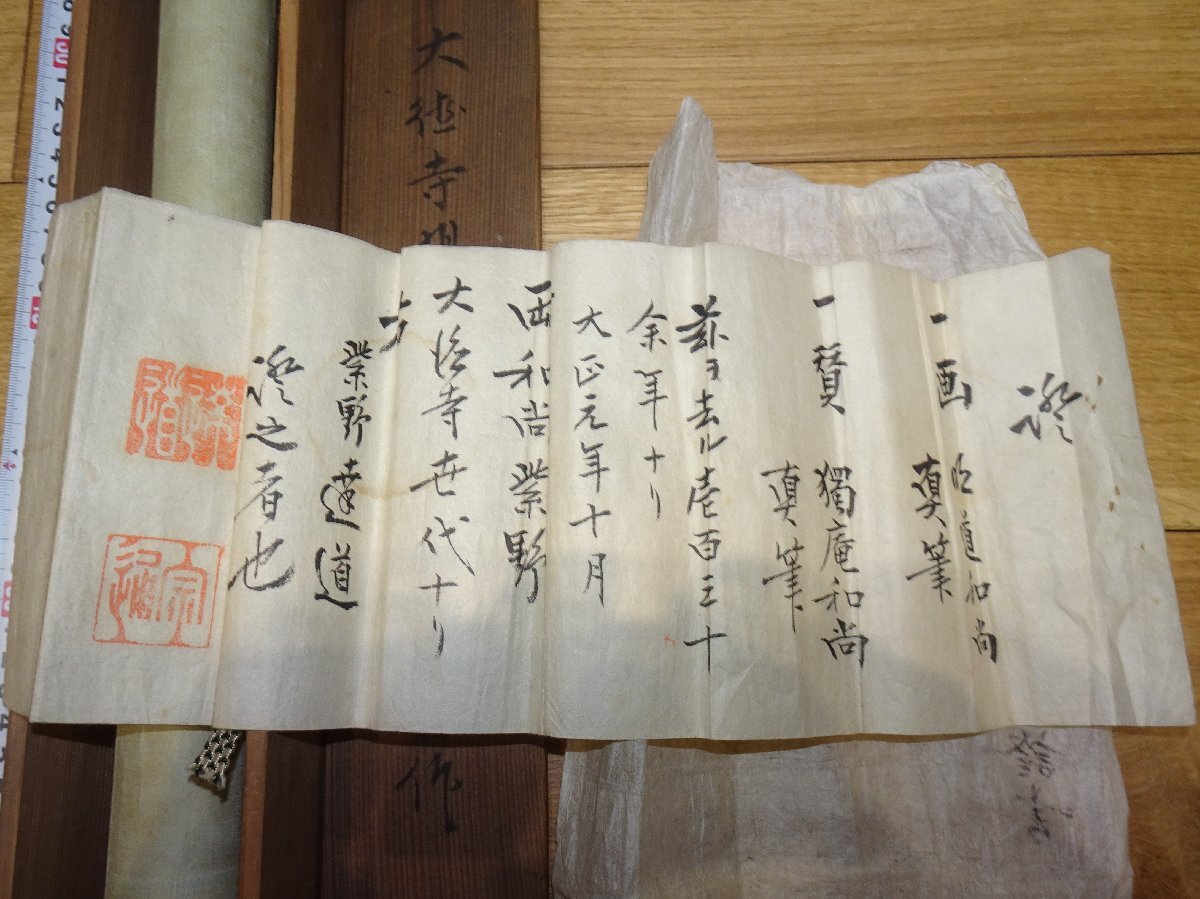 證
一画
道和尚
真筆
一賛 獨庵和尚
真筆
茲ヲ去ル壱百三十
余年ナリ
大正元年十月
両和尚紫野
大徳寺世代ナリ
紫野達道
證之者也
大徳寺
作